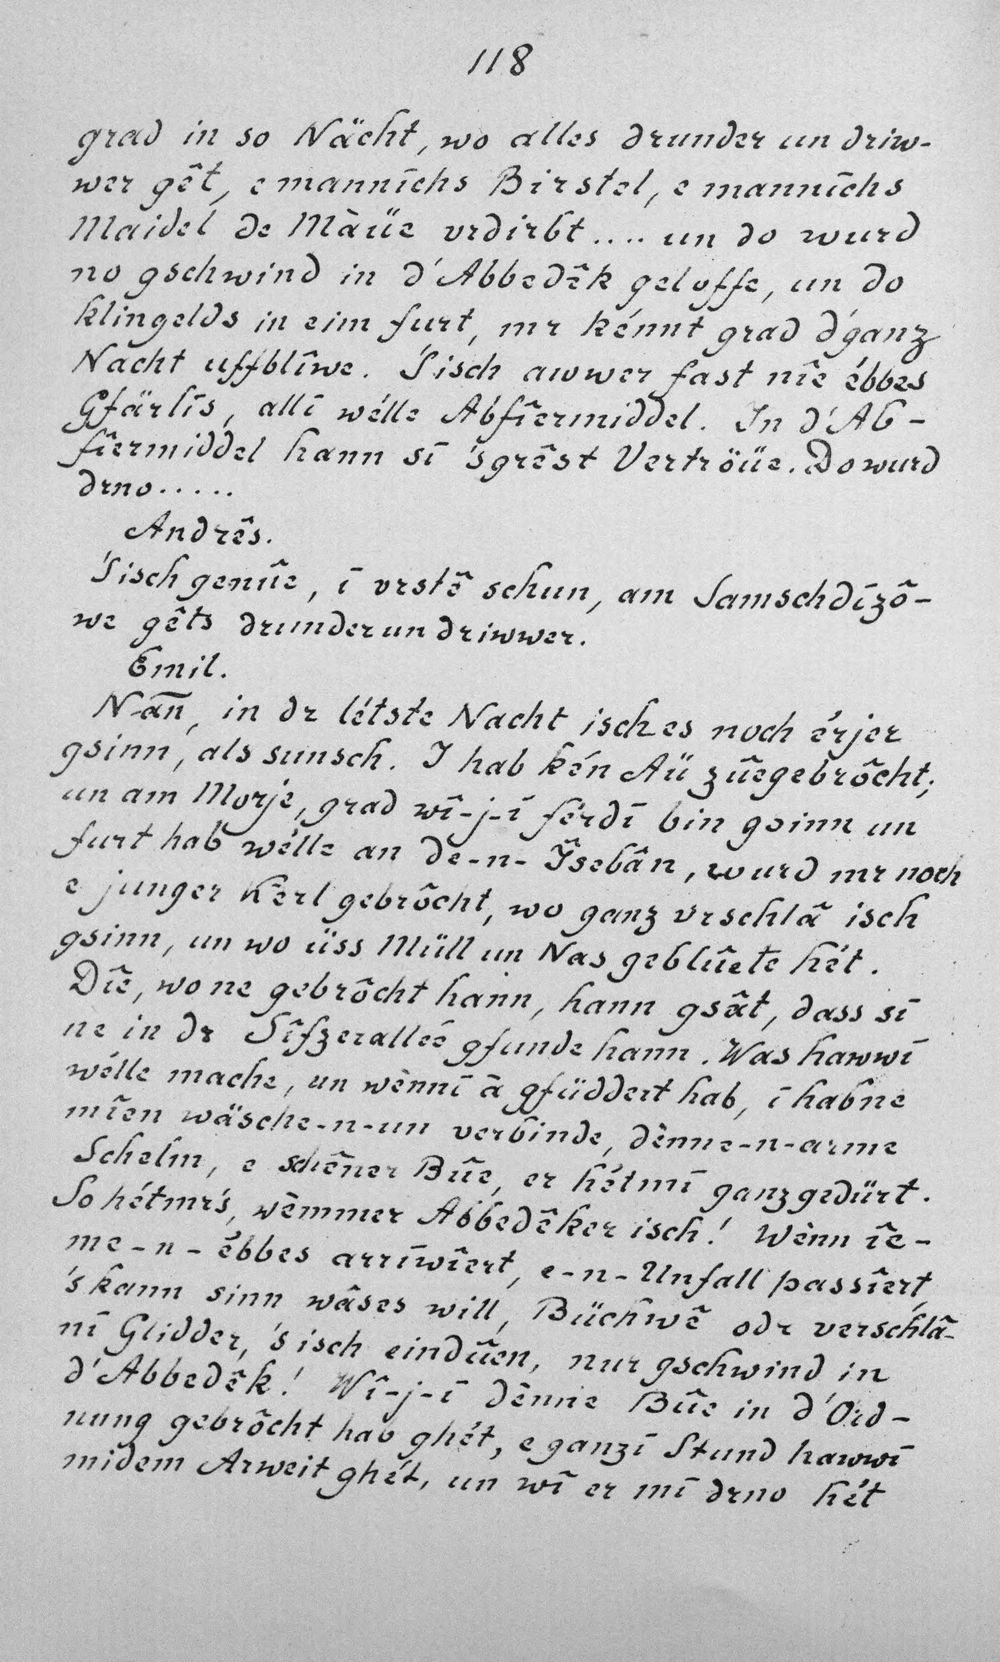 118
grad in so Nächt, wo alles drunder un driw-
wer gêt, e mannīchs Birstel, e mannīchs
Maidel de Màüe vrdirbt .... un do wurd
no gschwind in d'Abbedêk geloffe, un do
klingelds in eim furt, mr kénnt grad d'ganz
Nacht uffblîwe. 'Sisch awwer fast nîe ébbes
Gfärlīs, allī wélle Abfîermiddel. In d'Ab-
fîermiddel hann sī 'sgrêst Vertröüe. Do wurd
drno.....
Andrês.
'Sisch genûe, ī vrstê schun, am Samschdīzô-
we gêts drunder un driwwer.
Emil.
N-ān, in dr létste Nacht isch es noch érjer
gsinn, als sunsch. I hab kén Aü zûegebrôcht;
un am Morje, grad wî-j-ī férdī bin gsinn un
furt hab wélle an de-n-Îsebân, wurd mr noch
e junger Kerl gebrôcht, wo ganz vrschlâ isch
gsinn, un wo üss Müll un Nas geblûete hét.
Dîe, wo ne gebrôcht hann, hann gsât, dass sī
ne in dr Sîfzerallée gfunde hann. Was hawwī
wélle mache, un wènnī à gfüddert hab, ī hab ne
mîen wäsche-n-un verbinde, dènne-n-arme
Schelm, e schêner Bûe, er hét mī ganz gedürt.
So hétmr's, wèmmer Abbedêker isch! Wènn îe-
me-n-ébbes arrīwîert, e-n-Unfall passîert,
's kann sinn wâses will, Büchwê odr verschlâ-
nī Glidder, 's isch eindûen, nur gschwind in
d'Abbedêk! Wî-j-ī dènne Bûe in d'Ord-
nung gebrôcht hab ghét, e ganzī Stund hawwī
midem Arweit ghét, un wî er mī drno hét